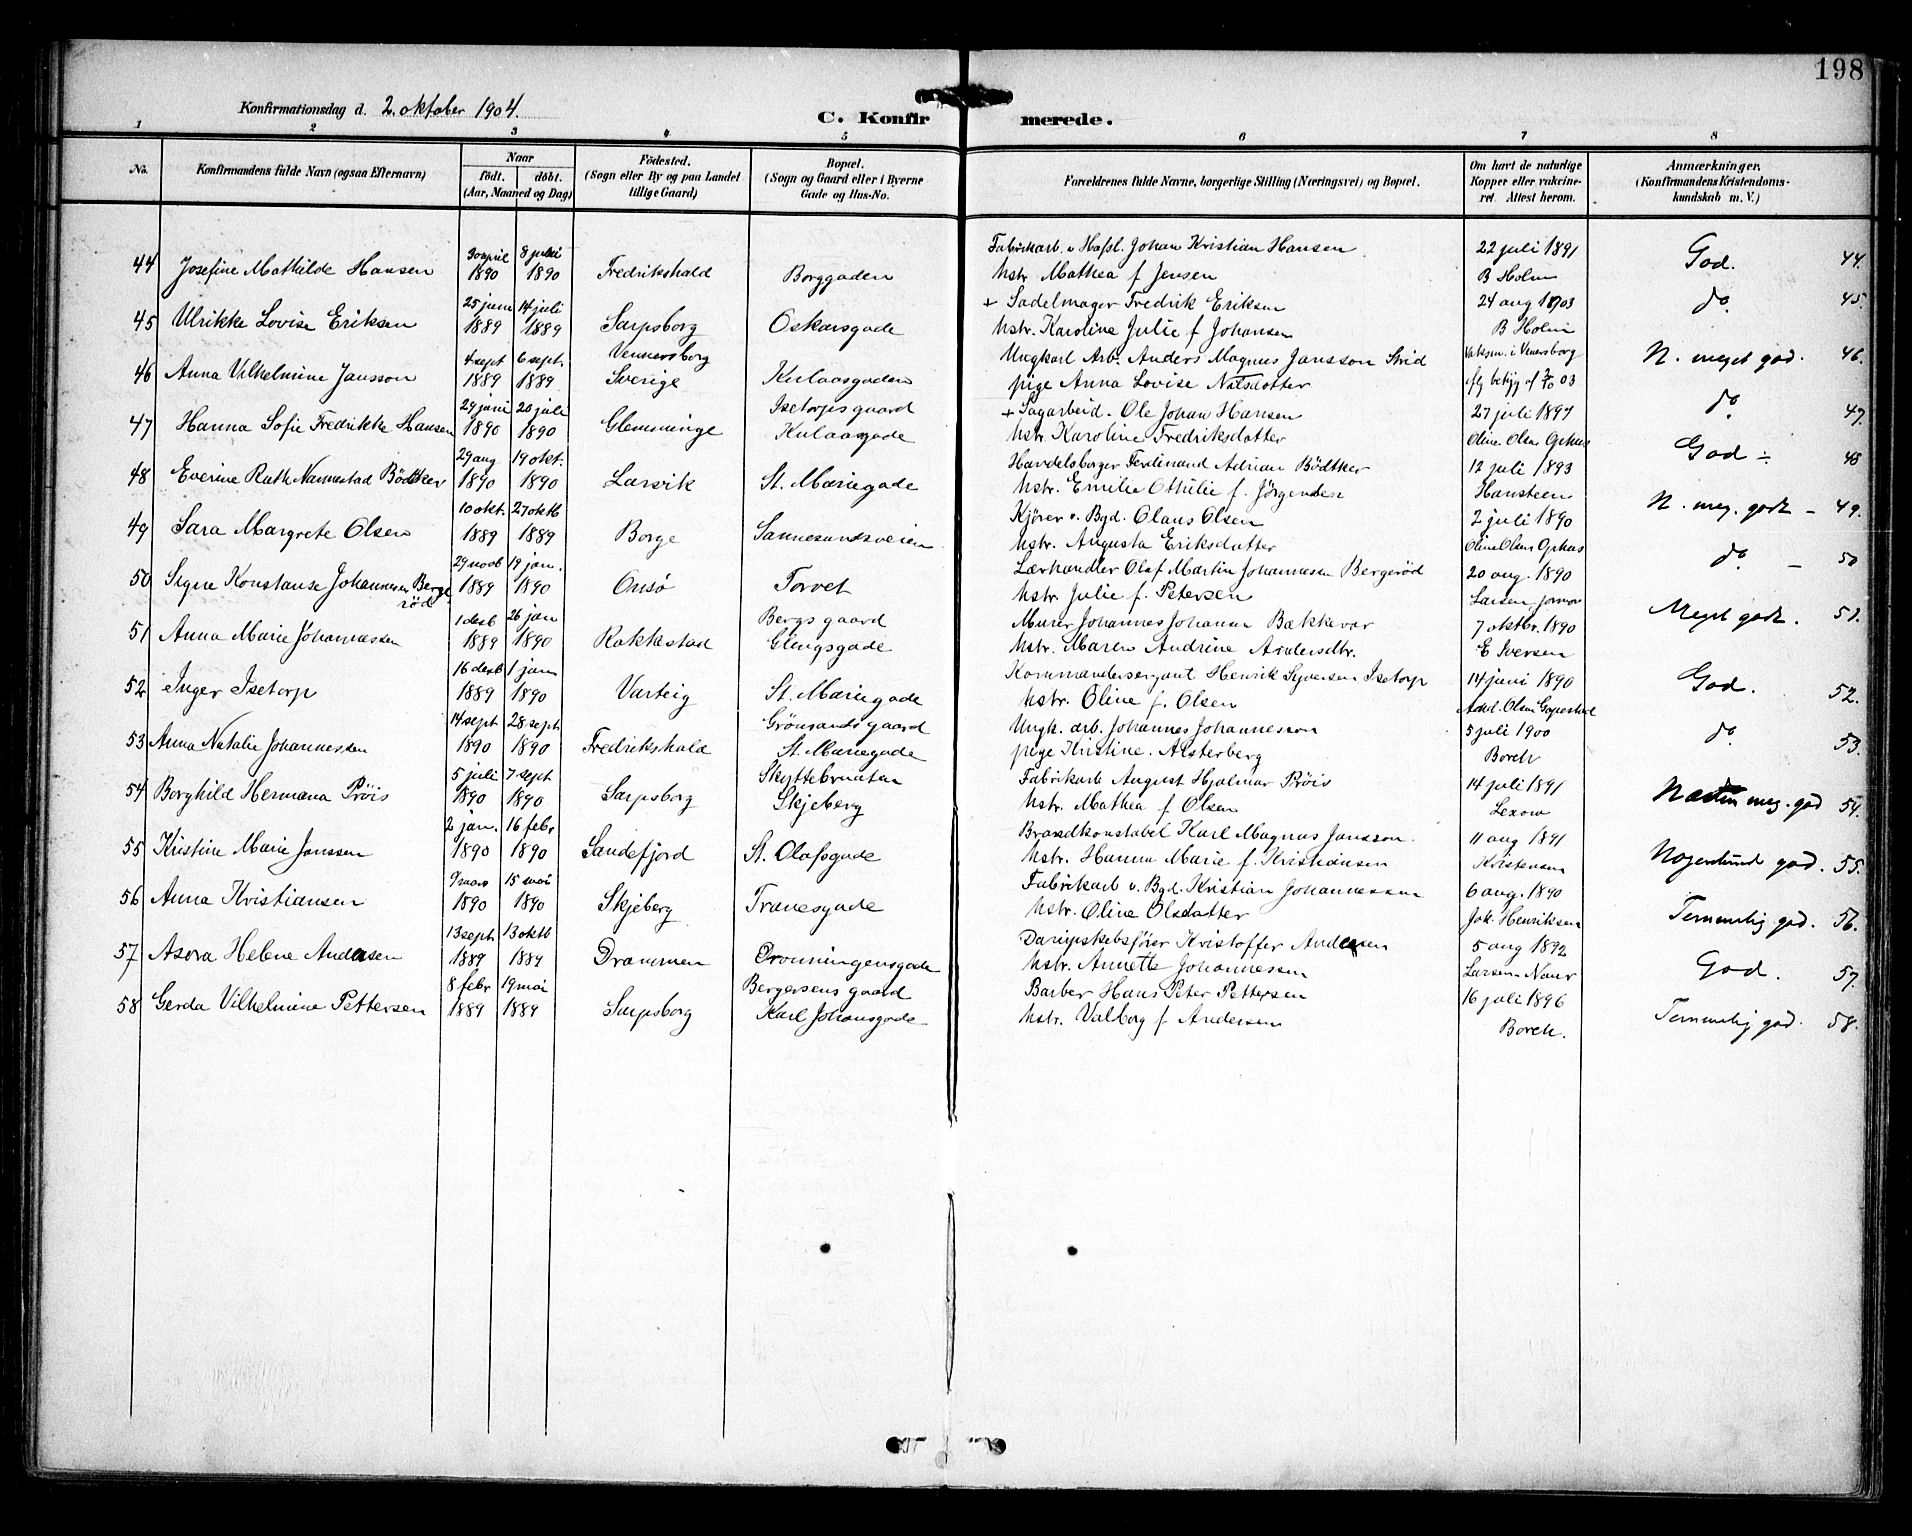 198
Konfirmationsdag d. 2. oktober 1904.
C. Konfirmerede.
1 2 3 4 5 6 7 8
No. Konfirmandens fulde Navn (ogsaa Efternavn) Naar født. døbt. (Aar, Maaned og Dag) Fødested. (Sogn eller By og paa Landet tillige Gaard) Bopæl. (Sogn og Gaard eller i Byerne Gade og Hus-No. Forældrenes fulde Navne, borgerlige Stilling (Næringsvei) og Bopæl. Om havt de naturlige Kopper eller vakcineret. Attest herom. Anmærkninger, (Konfirmandens Kristendomskundskab m. V.)
30 april 8 juli Fabrikarb. v. Hafsl. Johan Kristian Hansen 22 juli 1891
44 Josefine Mathilde Hansen 1890 1890 Fredrikshald Borggaden Hstr. Mathea f. Jensen B Holm God. 44.
25 juni 14 juli + Sadelmager Fredrik Eriksen 24 aug 1903
45 Ulrikke Lovise Eriksen 1889 1889 Sarpsborg Oskarsgade Hstr. Karoline Julie f. Johansen B Holm do. 45.
4 sept 6 sept. Vennersborg Ungkarl Arb. Anders Magnus Jansson Strid
46 Anna Vilhelmine Jansson 1889 1889 Sverige Kulaasgaden pige Anna Lovise Natsdotter N. meget god. 46.
29 juni 20 juli Isetorps gaard + Sagarbeid. Ole Johan Hansen 27 juli 1897
47 Hanna Sofie Fredrikke Hansen 1890 1890 Glemminge Kulaasgade Hstr. Karoline Fredriksdatter Oline Olsen Ophus do 47.
29 aug 19 okt. Handelsborger Ferdinand Adrian Bödtker 12 juli 1893
48 Everine Ruth Nannestad Bödtker 1890 1890 Larvik St. Mariegade Hstr. Emilie Othilie f. Jörgensen Hansteen God ÷ 48
10 okt. 27 oktb Kjører v. Bgd. Olaus Olsen 2 juli 1890
49 Sara Margrete Olsen 1889 1889 Borge Sannesundsveien Hstr. Augusta Eriksdatter Oline Olsen Ophus N. meg. godt - 49.
29 novb 19 jan. Lærhandler Olaf Martin Johannesen Bergerød 20 aug. 1890
50 Signe Konstanse Johannesen Bergerød 1889 1890 Onsø Torvet Hstr. Julie f. Petersen Larsen jormor do - 50
1 desb 26 jan Bergs gaard Murer Johannes Johansen Bækkevar 7 oktbr. 1890
51 Anna Marie Johannessen 1889 1890 Rakkestad Glengsgade Hstr. Maren Andrine Andersdtr. E Iversen Meget godt. 51.
16 desb 1 jan Kommandersergant Henrik Syversen Isetorp 14 juni 1890
52 Inger Isetorp 1889 1890 Varteig St. Mariegade Hstr. Oline f. Olsen God. 52.
14 sept 28 sept Grönsands gaard Ungk. arb. Johannes Johannesson 5 juli 1900
53 Anna Natalie Johannessen 1890 1890 Fredrikshald St. Mariegade pige Kristine Alsterberg Borch do. 53.
5 juli 7 sept Skyttebruaten Fabrikarb August Hjalmar Pröis 14 juli 1891
54 Borghild Hermana Pröis 1890 1890 Sarpsborg Skjeberg Hstr. Mathea f. Olsen Lexow Næsten meg. god 54.
2 jan. 16 febr Brandkonstabel Karl Magnus Jansson. 11 aug 1891
55 Kristine Marie Janssen 1890 1890 Sandefjord St. Olafsgade Hstr. Hanna Marie f. Kristiansen Kristensen Nogenlund god. 55.
9 mars 15 mai Fabrikarb v. Bgd. Kristian Johannessen 6 aug. 1890
56 Anna Kristiansen 1890 1890 Skjeberg Tranesgade Hstr. Oline Olsdatter Joh. Henriksen Temmelig god. 56.
13 sept 13 oktb Dampskibsfører Kristoffer Andersen 5 aug 1892
57 Asora Helene Andersen 1889 1889 Drammen Dronningensgade Hstr. Annette Johannessen God. 57.
8 febr 19 mai Bergersens gaard Barber Hans Peter Pettersen 16 juli 1896
58 Gerda Vilhelmine Pettersen 1889 1889 Sarpsborg Karl Johansgade Hstr. Valborg f. Andersen Borch. Temmelig god. 58.